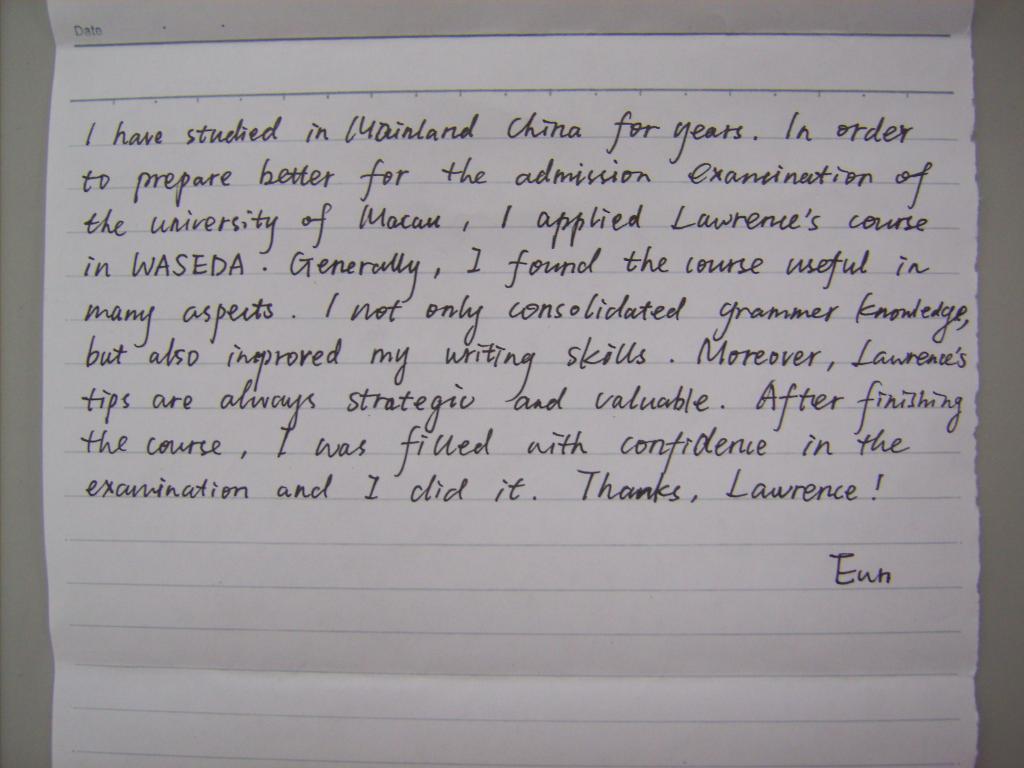 Date
I have studied in Mainland China for years. In order
to prepare better for the admission examination of
the university of Macau, I applied Lawrence's course
in WASEDA. Generally, I found the course useful in
many aspects. I not only consolidated grammer knowledge,
but also improved my writing skills. Moreover, Lawrence's
tips are always strategic and valuable. After finishing
the course, I was filled with confidence in the
examination and I did it. Thanks, Lawrence!
Eun